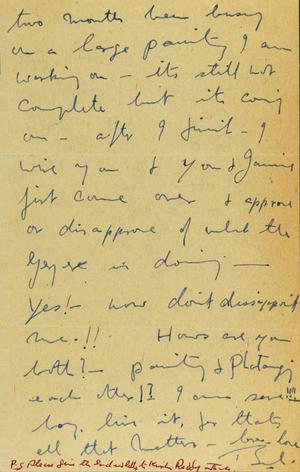 two months been busy
on a large painting I am
working on – its still not
complete but its coming
on – after I finish – I
wire you & you & Jamini
just come over & approve
or disapprove of what the
is doing –
Yes! – now dont disappoint
me.!! Hows are you
both? – painting &
each other!? I am
boy, live it, for thats
all that matters – love
P.S Please give the enclosed to Reddy